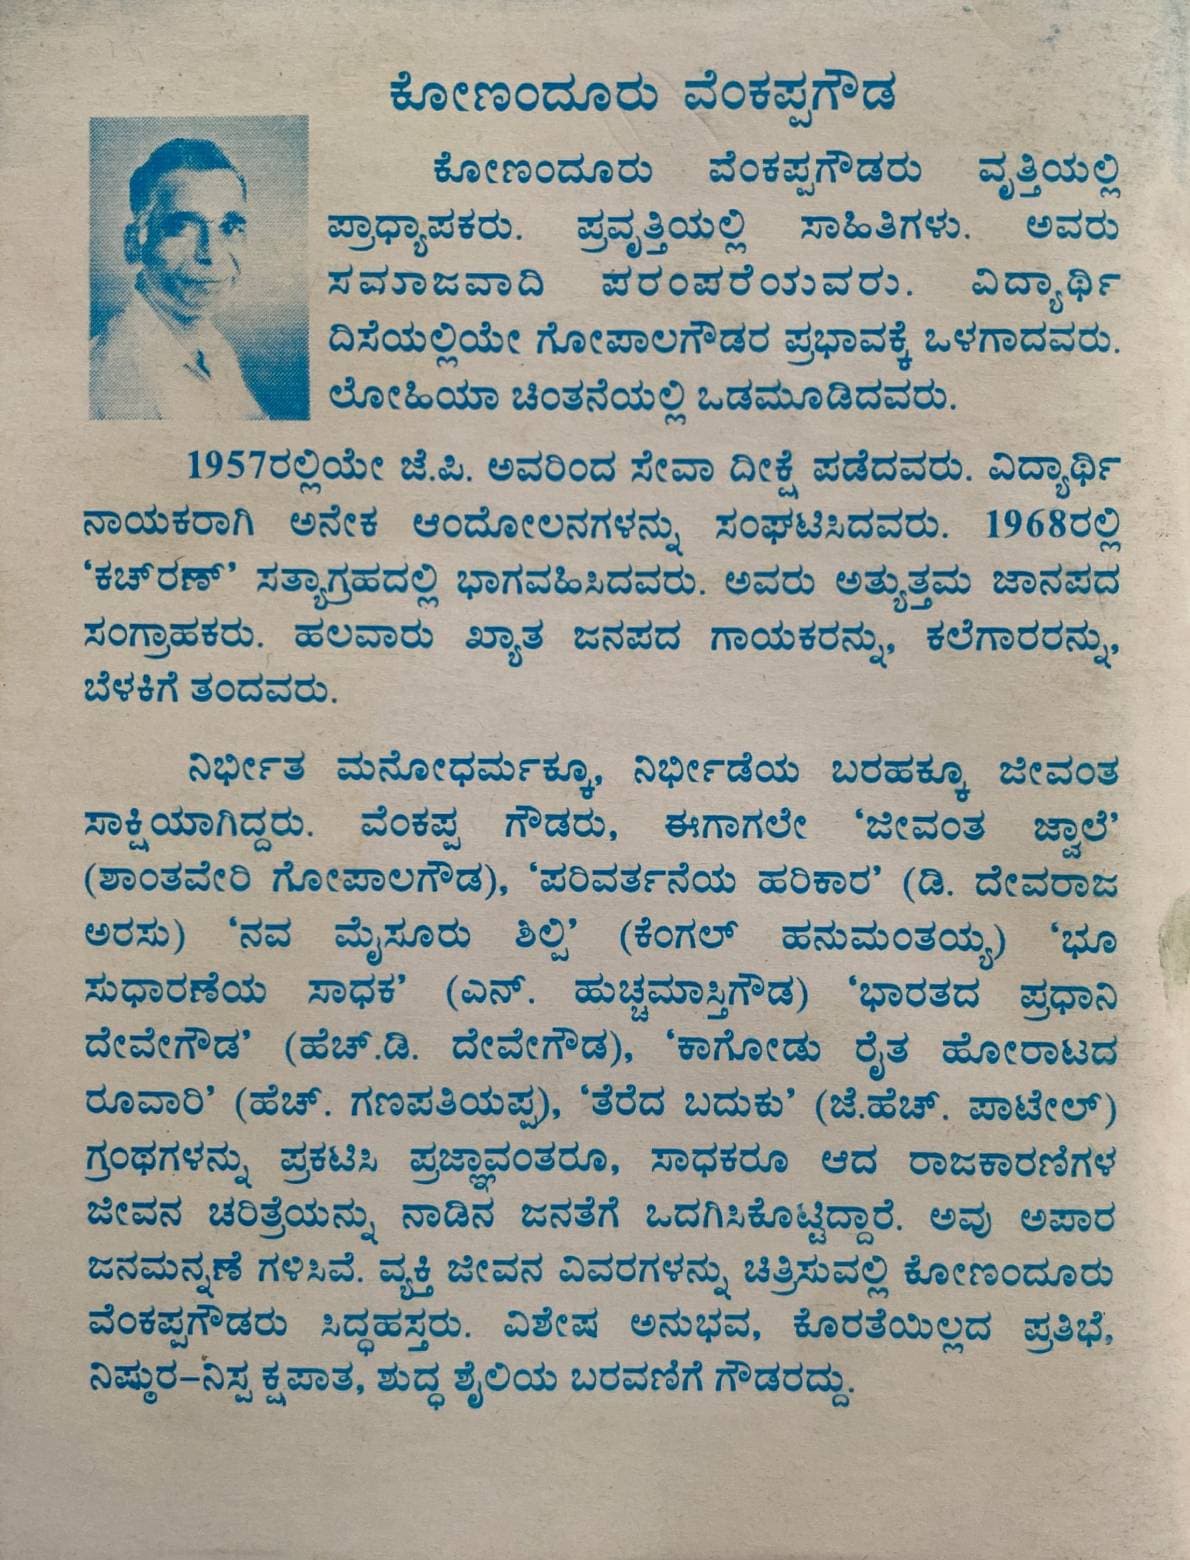 ಕೋಣಂದೂರು ವೆಂಕಪ್ಪಗೌಡ
ಕೋಣಂದೂರು ವೆಂಕಪ್ಪಗೌಡರು ವೃತ್ತಿಯಲ್ಲಿ
ಪ್ರಾಧ್ಯಾಪಕರು. ಪ್ರವೃತ್ತಿಯಲ್ಲಿ ಸಾಹಿತಿಗಳು. ಅವರು
ಸಮಾಜವಾದಿ ಪರಂಪರೆಯವರು. ವಿದ್ಯಾರ್ಥಿ
ದಿಸೆಯಲ್ಲಿಯೇ ಗೋಪಾಲಗೌಡರ ಪ್ರಭಾವಕ್ಕೆ ಒಳಗಾದವರು.
ಲೋಹಿಯಾ ಚಿಂತನೆಯಲ್ಲಿ ಒಡಮೂಡಿದವರು.
1957ರಲ್ಲಿಯೇ ಜೆ.ಪಿ. ಅವರಿಂದ ಸೇವಾ ದೀಕ್ಷೆ ಪಡೆದವರು. ವಿದ್ಯಾರ್ಥಿ
ನಾಯಕರಾಗಿ ಅನೇಕ ಆಂದೋಲನಗಳನ್ನು ಸಂಘಟಿಸಿದವರು. 1968ರಲ್ಲಿ
‘ಕಚ್‌ರಣ್’ ಸತ್ಯಾಗ್ರಹದಲ್ಲಿ ಭಾಗವಹಿಸಿದವರು. ಅವರು ಅತ್ಯುತ್ತಮ ಜಾನಪದ
ಸಂಗ್ರಾಹಕರು. ಹಲವಾರು ಖ್ಯಾತ ಜನಪದ ಗಾಯಕರನ್ನು, ಕಲೆಗಾರರನ್ನು,
ಬೆಳಕಿಗೆ ತಂದವರು.
ನಿರ್ಭೀತ ಮನೋಧರ್ಮಕ್ಕೂ, ನಿರ್ಭೀಡೆಯ ಬರಹಕ್ಕೂ ಜೀವಂತ
ಸಾಕ್ಷಿಯಾಗಿದ್ದರು. ವೆಂಕಪ್ಪ ಗೌಡರು, ಈಗಾಗಲೇ ‘ಜೀವಂತ ಜ್ವಾಲೆ’
(ಶಾಂತವೇರಿ ಗೋಪಾಲಗೌಡ), ‘ಪರಿವರ್ತನೆಯ ಹರಿಕಾರ’ (ಡಿ. ದೇವರಾಜ
ಅರಸು) ‘ನವ ಮೈಸೂರು ಶಿಲ್ಪಿ’ (ಕೆಂಗಲ್ ಹನುಮಂತಯ್ಯ) ‘ಭೂ
ಸುಧಾರಣೆಯ ಸಾಧಕ’ (ಎನ್. ಹುಚ್ಚಮಾಸ್ತಿಗೌಡ) ‘ಭಾರತದ ಪ್ರಧಾನಿ
ದೇವೇಗೌಡ’ (ಹೆಚ್.ಡಿ. ದೇವೇಗೌಡ), ‘ಕಾಗೋಡು ರೈತ ಹೋರಾಟದ
ರೂವಾರಿ’ (ಹೆಚ್. ಗಣಪತಿಯಪ್ಪ), ‘ತೆರೆದ ಬದುಕು’ (ಜೆ.ಹೆಚ್. ಪಾಟೇಲ್)
ಗ್ರಂಥಗಳನ್ನು ಪ್ರಕಟಿಸಿ ಪ್ರಜ್ಞಾವಂತರೂ, ಸಾಧಕರೂ ಆದ ರಾಜಕಾರಣಿಗಳ
ಜೀವನ ಚರಿತ್ರೆಯನ್ನು ನಾಡಿನ ಜನತೆಗೆ ಒದಗಿಸಿಕೊಟ್ಟಿದ್ದಾರೆ. ಅವು ಅಪಾರ
ಜನಮನ್ನಣೆ ಗಳಿಸಿವೆ. ವ್ಯಕ್ತಿ ಜೀವನ ವಿವರಗಳನ್ನು ಚಿತ್ರಿಸುವಲ್ಲಿ ಕೋಣಂದೂರು
ವೆಂಕಪ್ಪಗೌಡರು ಸಿದ್ಧಹಸ್ತರು. ವಿಶೇಷ ಅನುಭವ, ಕೊರತೆಯಿಲ್ಲದ ಪ್ರತಿಭೆ,
ನಿಷ್ಠುರ–ನಿಸ್ಪಕ್ಷಪಾತ, ಶುದ್ಧ ಶೈಲಿಯ ಬರವಣಿಗೆ ಗೌಡರದ್ದು.